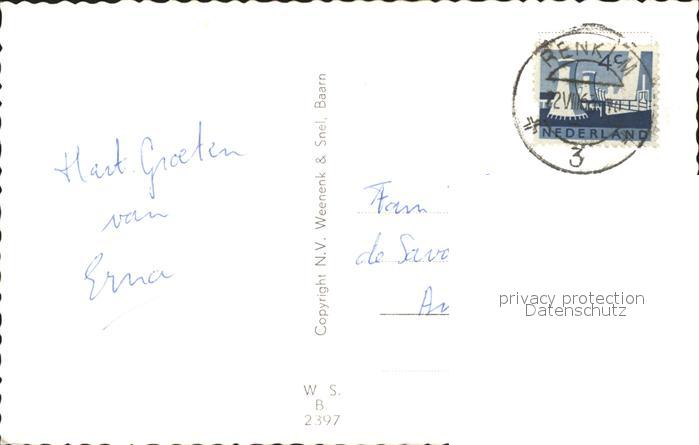 Hart. Groeten
van
Erna
Copyright N.V. Weenenk & Snel, Baarn
W S.
B.
2397
RENKUM
4c
NEDERLAND
3
Fam
de Savo
privacy protection
Datenschutz